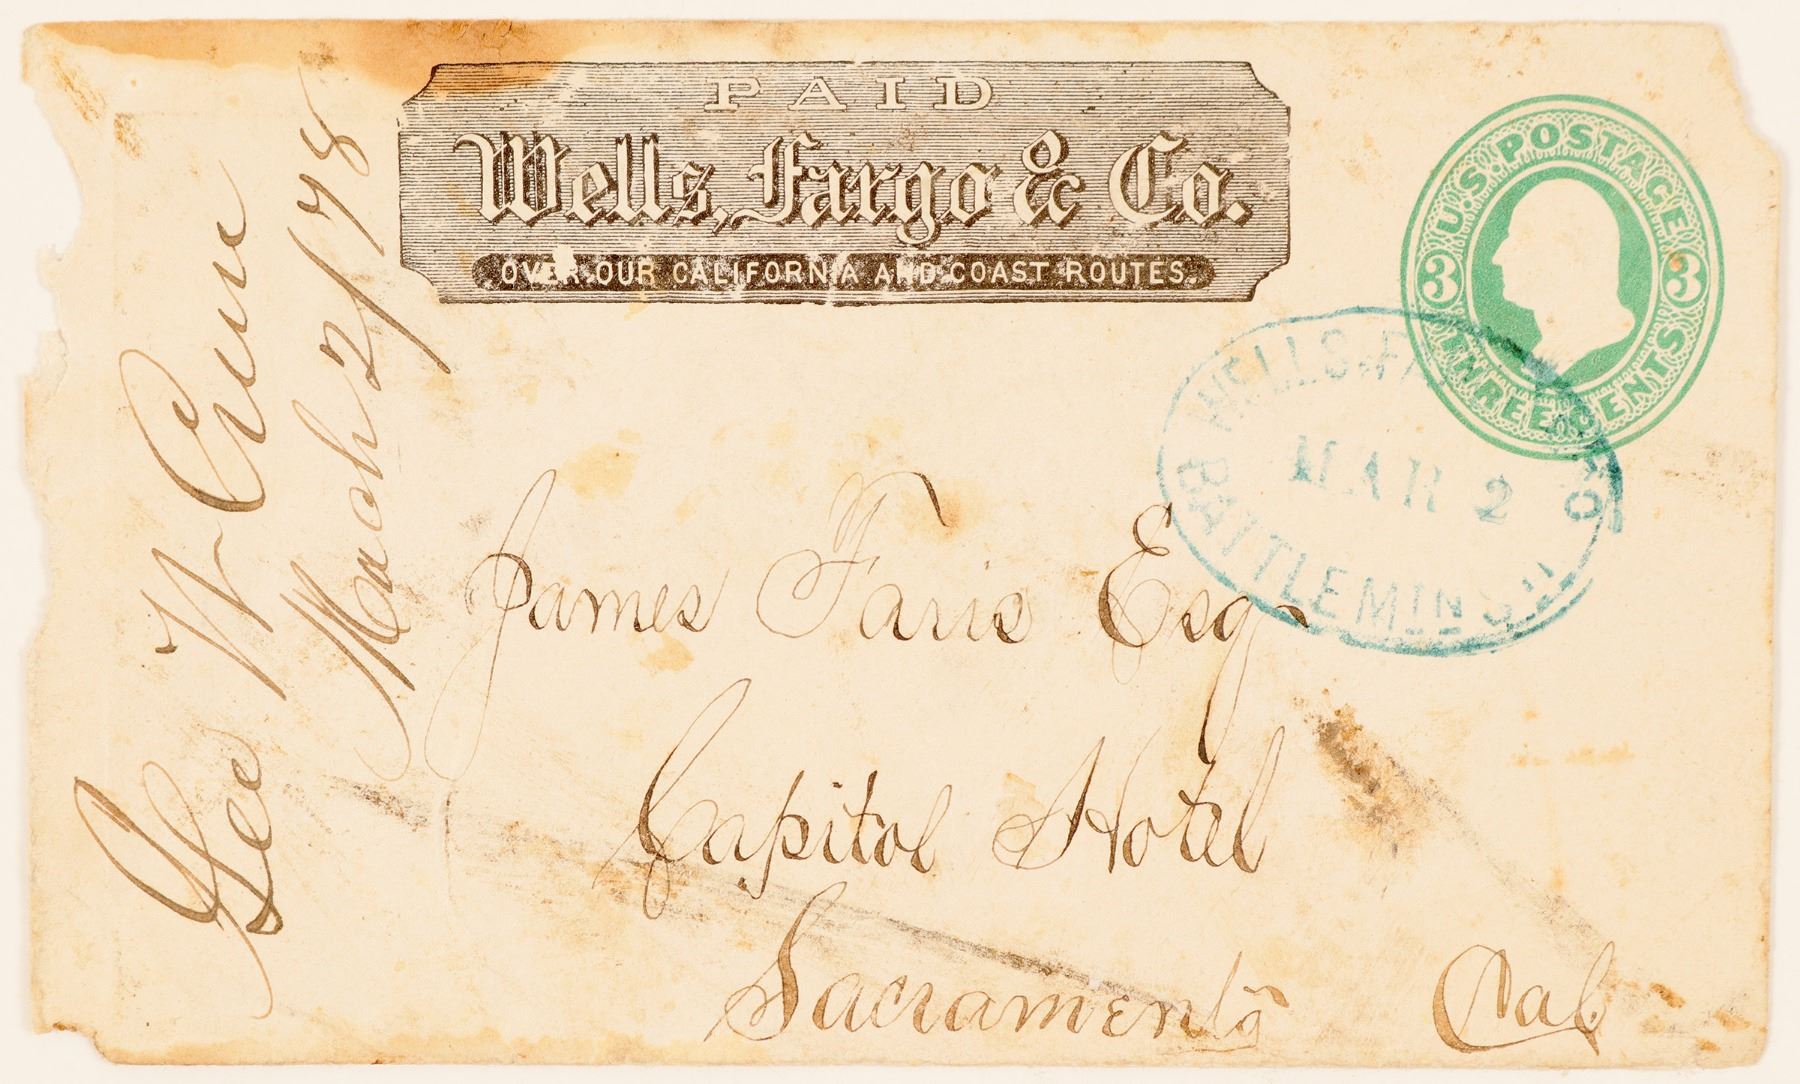 PAID
Wells, Fargo & Co.
OVER OUR CALIFORNIA AND COAST ROUTES.
U.S. POSTAGE
3 3
THREE CENTS
WELLS, FARGO
MAR 2
BATTLE MTN
James Faris Esq
Capitol Hotel
Sacramento Cal
Geo W Crum
March 2/78